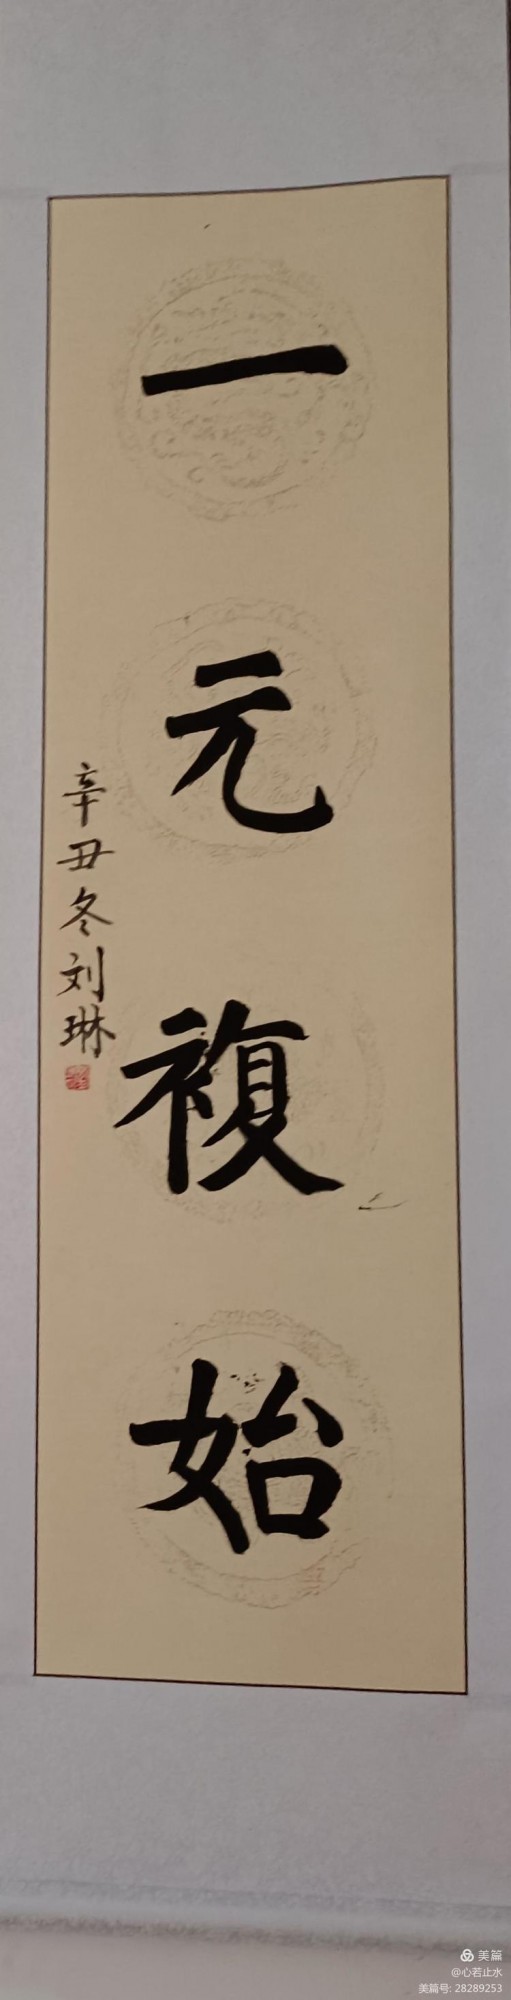 一元複始
辛丑冬刘琳
美篇
@心若止水
美篇号: 28289253